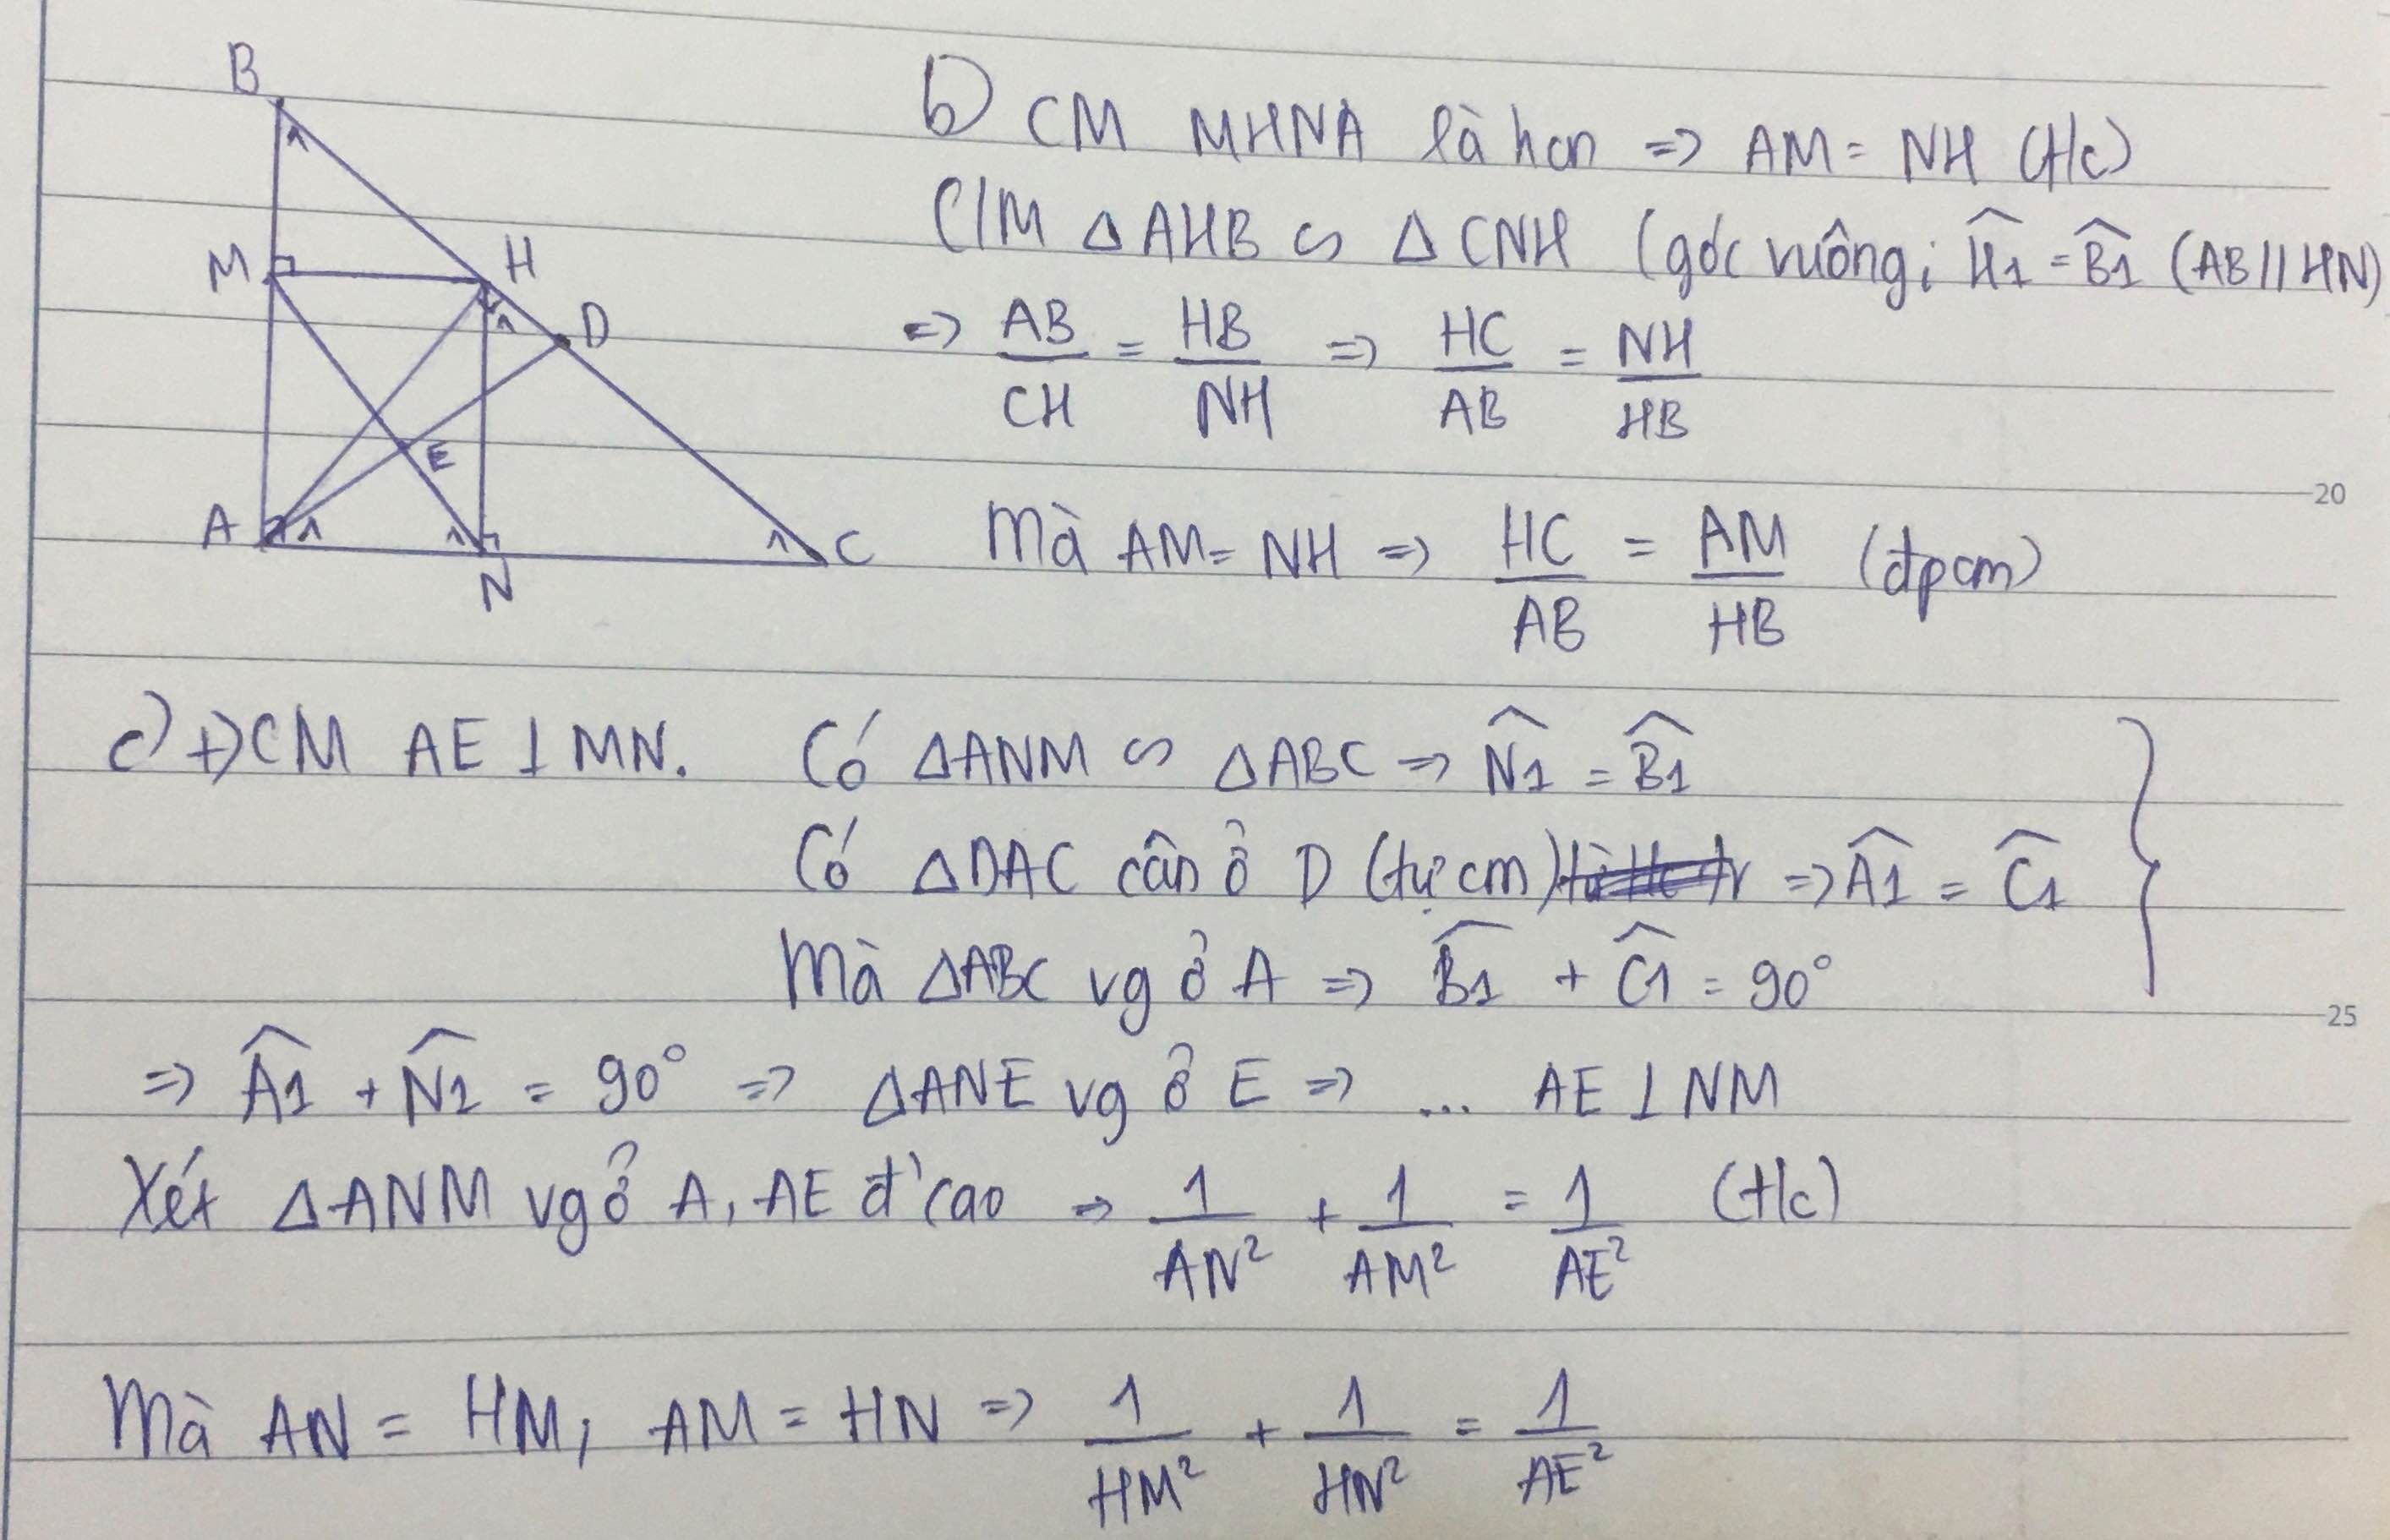 B
M
H
D
E
A
N
C
b) CM MHNA là hcn => AM = NH (t/c)
C/M ΔAHB ∽ ΔCNH (góc vuông; Ĥ1 = B̂1 (AB // HN)
=> AB/CH = HB/NH => HC/AB = NH/HB
20
Mà AM = NH => HC/AB = AM/HB (đpcm)
c) +) CM AE ⊥ MN. Có ΔANM ∽ ΔABC => N̂1 = B̂1
Có ΔDAC cân ở D (tự cm) => Â1 = Ĉ1
Mà ΔABC vg ở A => B̂1 + Ĉ1 = 90°
25
=> Â1 + N̂1 = 90° => ΔANE vg ở E => ... AE ⊥ NM
Xét ΔANM vg ở A, AE đ' cao => 1/AN² + 1/AM² = 1/AE² (t/c)
Mà AN = HM, AM = HN => 1/HM² + 1/HN² = 1/AE²